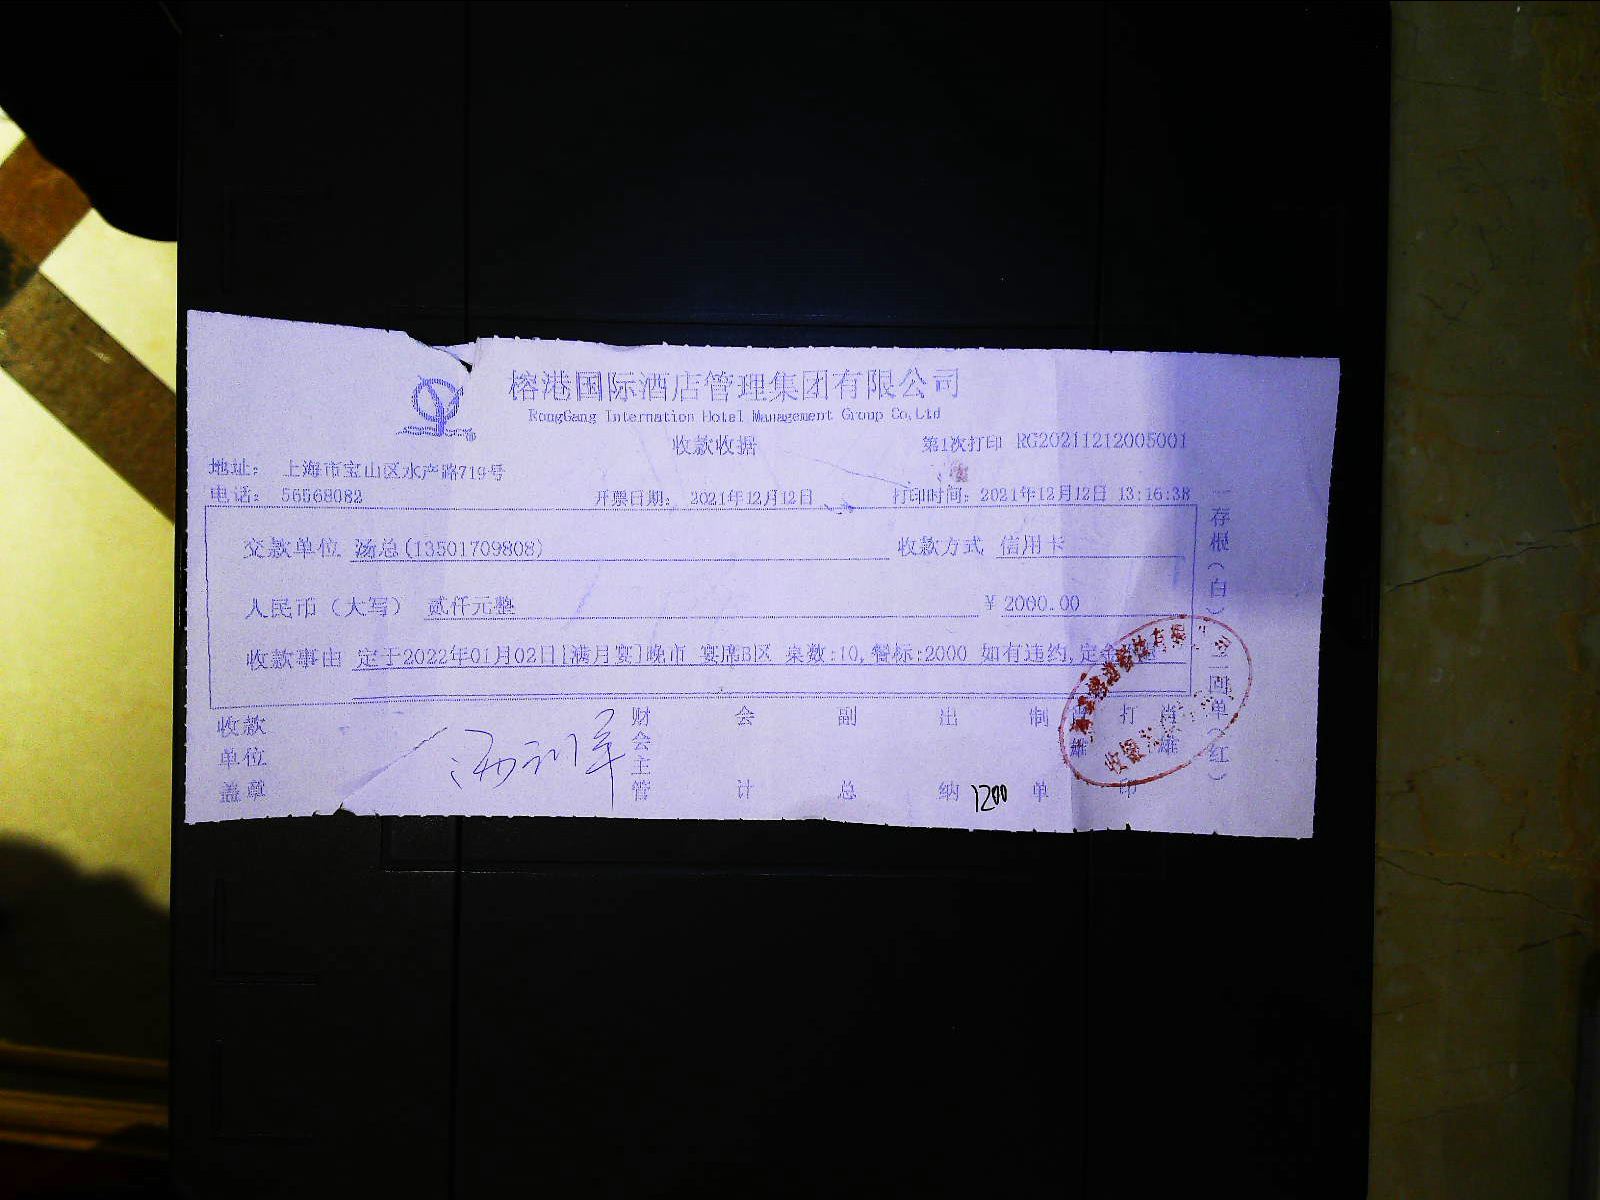 榕港国际酒店管理集团有限公司
RongGang Internation Hotel Management Group Co,Ltd
收款收据
第1次打印 RG20211212005001
地址： 上海市宝山区水产路719号
电话： 56568082 开票日期： 2021年12月12日 打印时间：2021年12月12日 13:16:38
交款单位 汤总(13501709808) 收款方式 信用卡
人民币（大写） 贰仟元整 ￥2000.00
收款事由 定于2022年01月02日[满月宴]晚市 宴席B区 桌数:10,餐标:2000 如有违约,定金
收款单位盖章 财会主管 会计 副总 出纳 制单 打印 肖雄
1200
一存根(白)二回单(红)